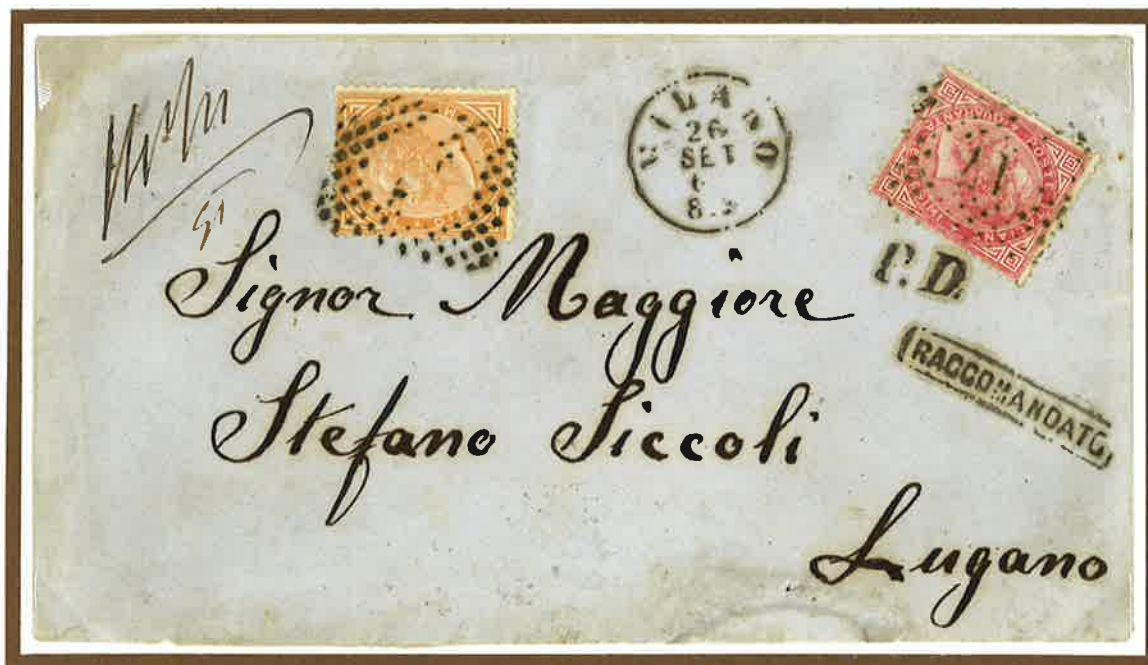 MILANO
26
SET
6
8.
P.D.
RACCOMANDATO
Signor Maggiore
Stefano Siccoli
Lugano